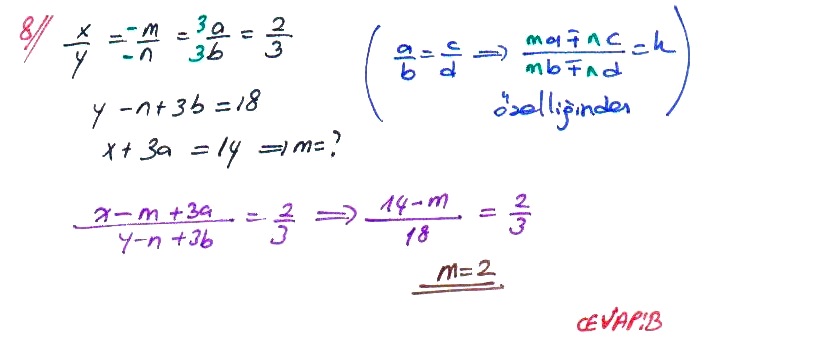 8// x/y = -m/-n = 3a/3b = 2/3 (a/b = c/d ⟹ ma∓nc/mb∓nd = k özelliğinden)
y - n + 3b = 18
x + 3a = 14 ⟹ m = ?
x - m + 3a/y - n + 3b = 2/3 ⟹ 14 - m/18 = 2/3
m = 2
CEVAP:B